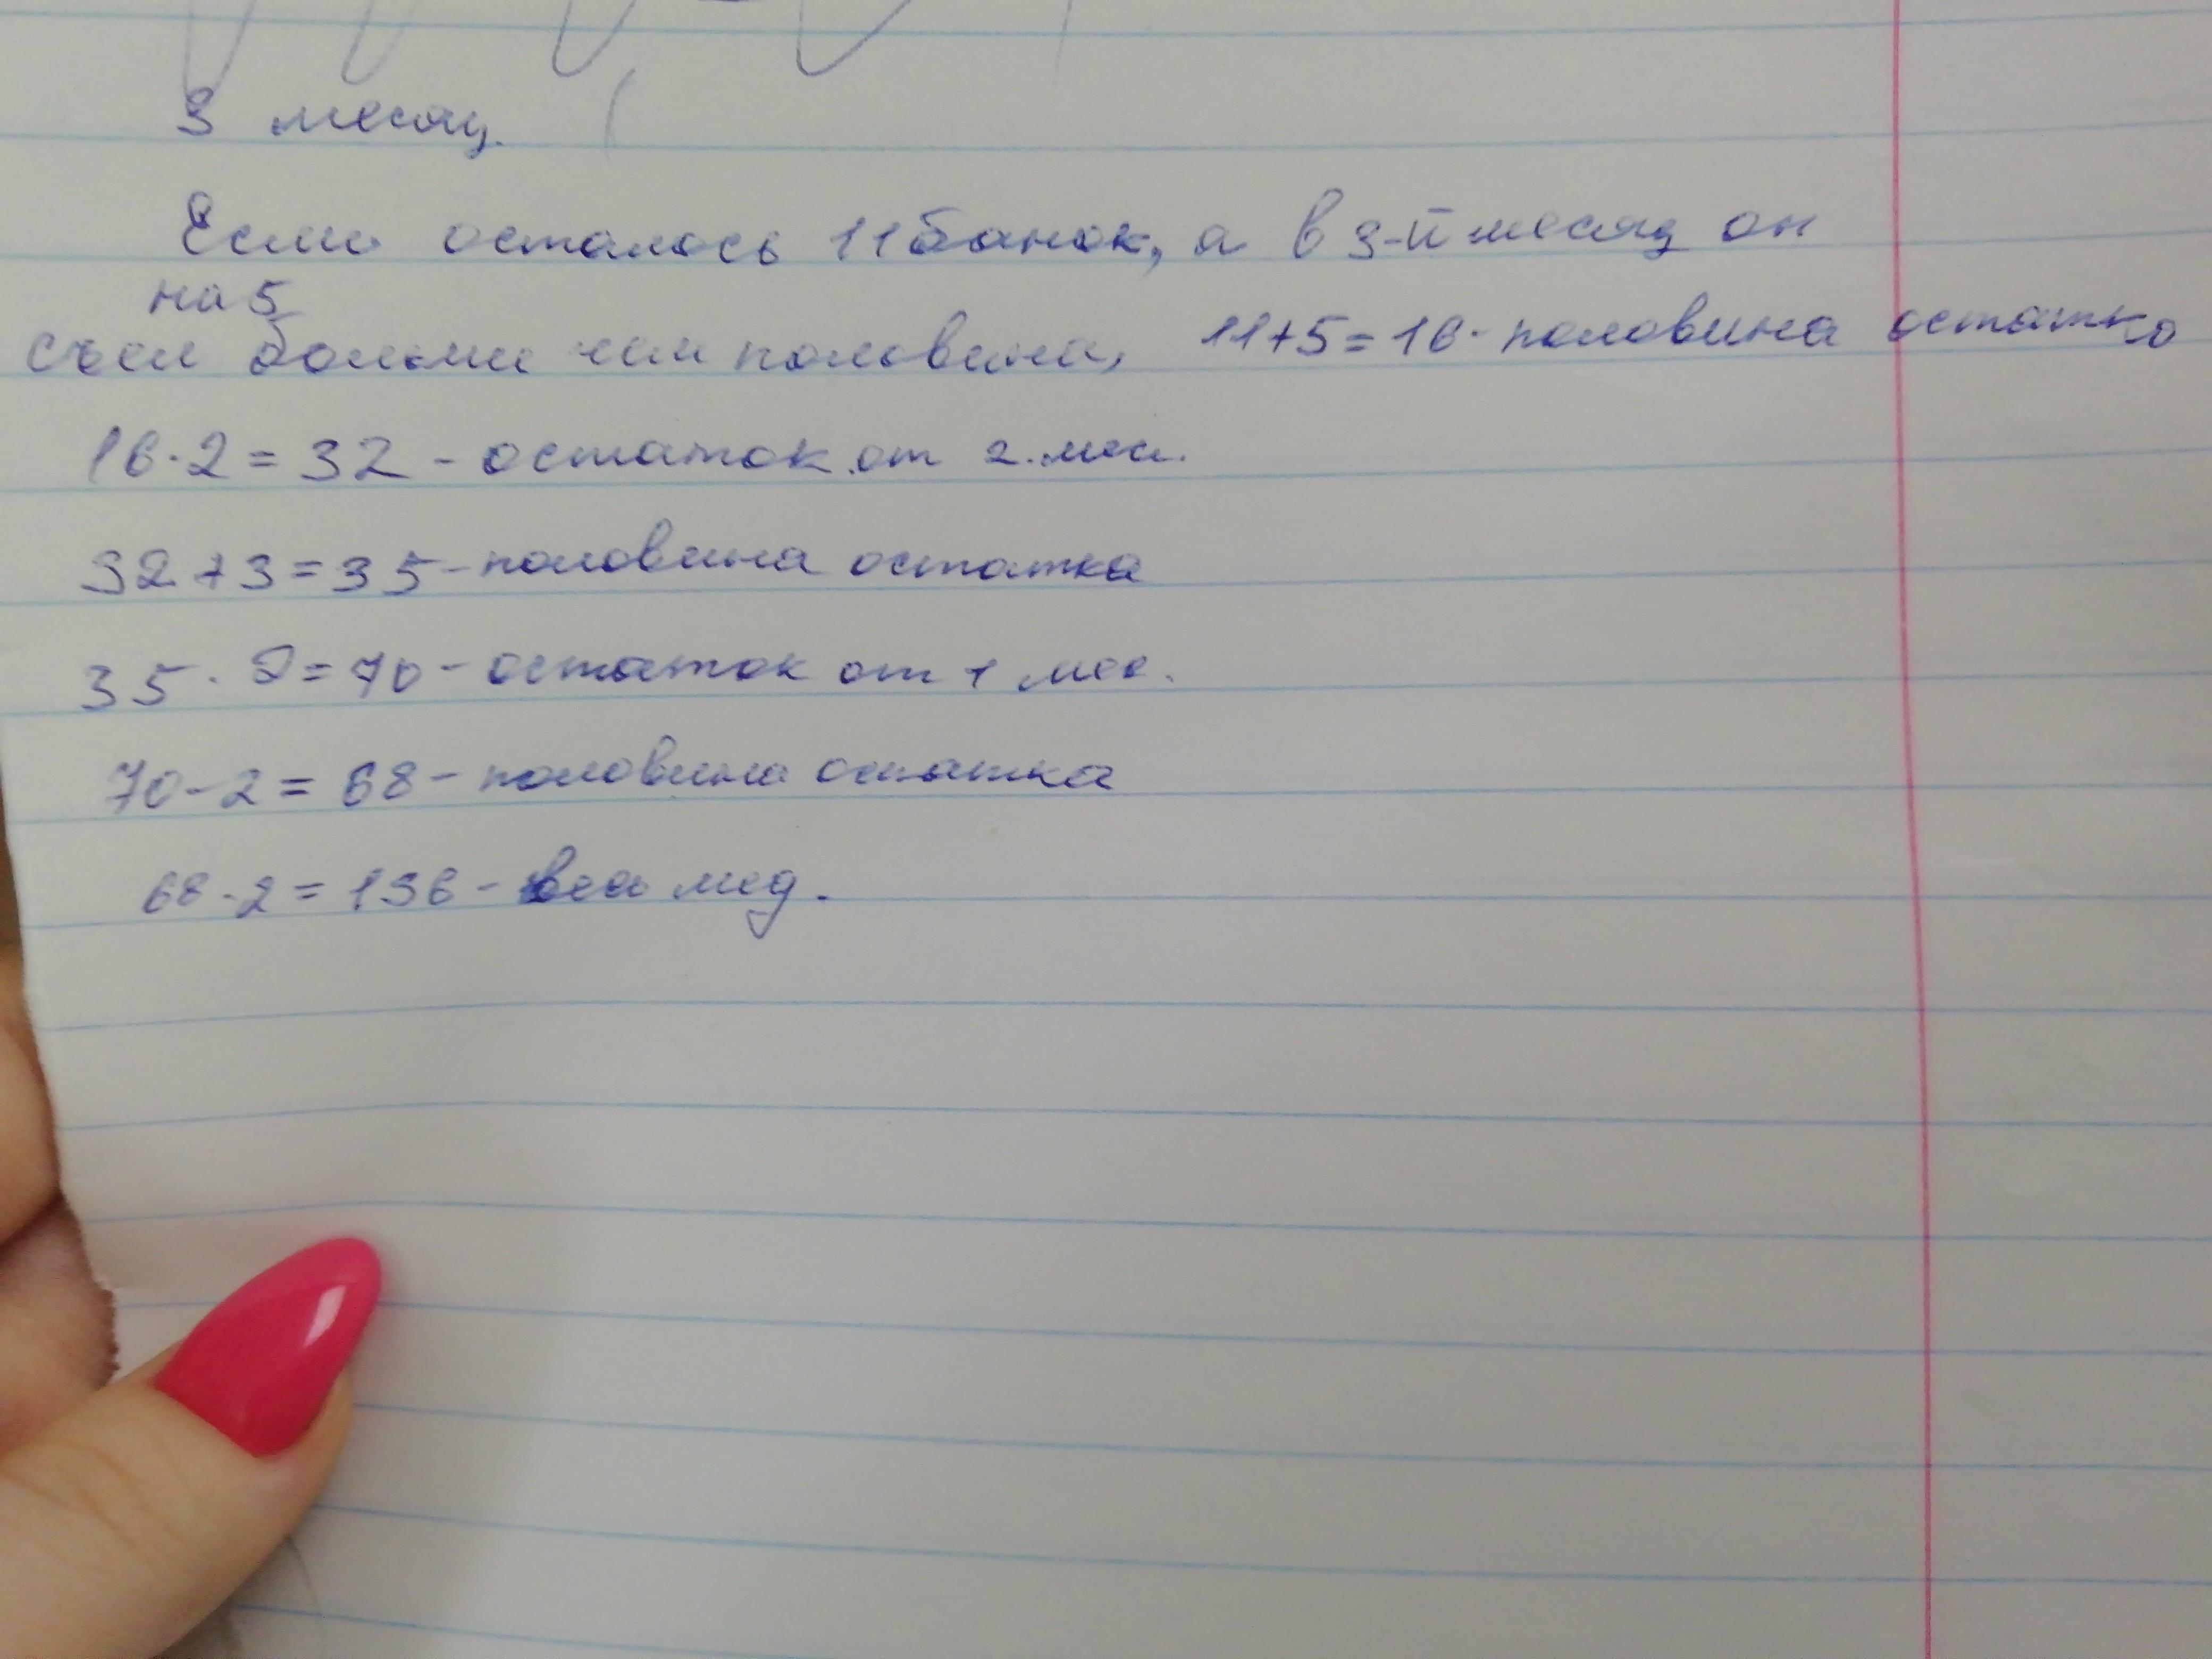 3 месяц.
Если осталось 11 банок, а в 3-й месяц он
на 5
съел больше чем половина, 11+5=16 - половина остатка
16·2=32 - остаток от 2 мес.
32+3=35 - половина остатка
35·2=70 - остаток от 1 мес.
70-2=68 - половина остатка
68·2=136 - весь мед.